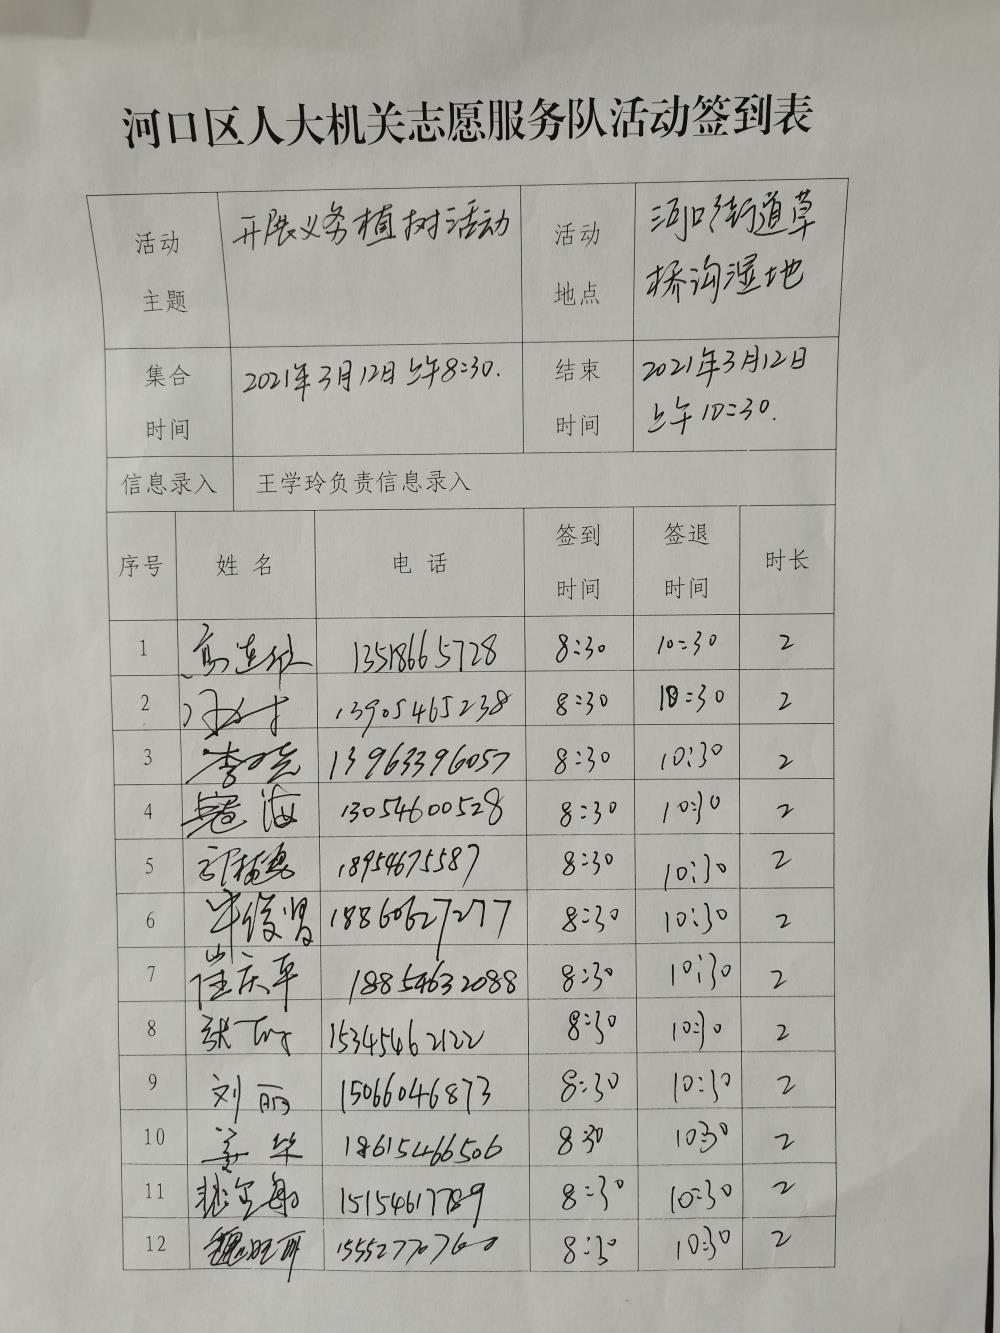 河口区人大机关志愿服务队活动签到表
活动主题 开展义务植树活动 活动地点 河口街道草桥沟湿地
集合时间 2021年3月12日上午8:30. 结束时间 2021年3月12日上午10:30.
信息录入 王学玲负责信息录入
序号 姓名 电话 签到时间 签退时间 时长
1 13518665728 8:30 10:30 2
2 13905465238 8:30 10:30 2
3 13963396057 8:30 10:30 2
4 海 13054600528 8:30 10:30 2
5 18954675587 8:30 10:30 2
6 牛俊贤 18860627277 8:30 10:30 2
7 崔庆平 18854632088 8:30 10:30 2
8 张 15345462122 8:30 10:30 2
9 刘丽 15066046873 8:30 10:30 2
10 姜华 18615466506 8:30 10:30 2
11 15154617789 8:30 10:30 2
12 15552770760 8:30 10:30 2